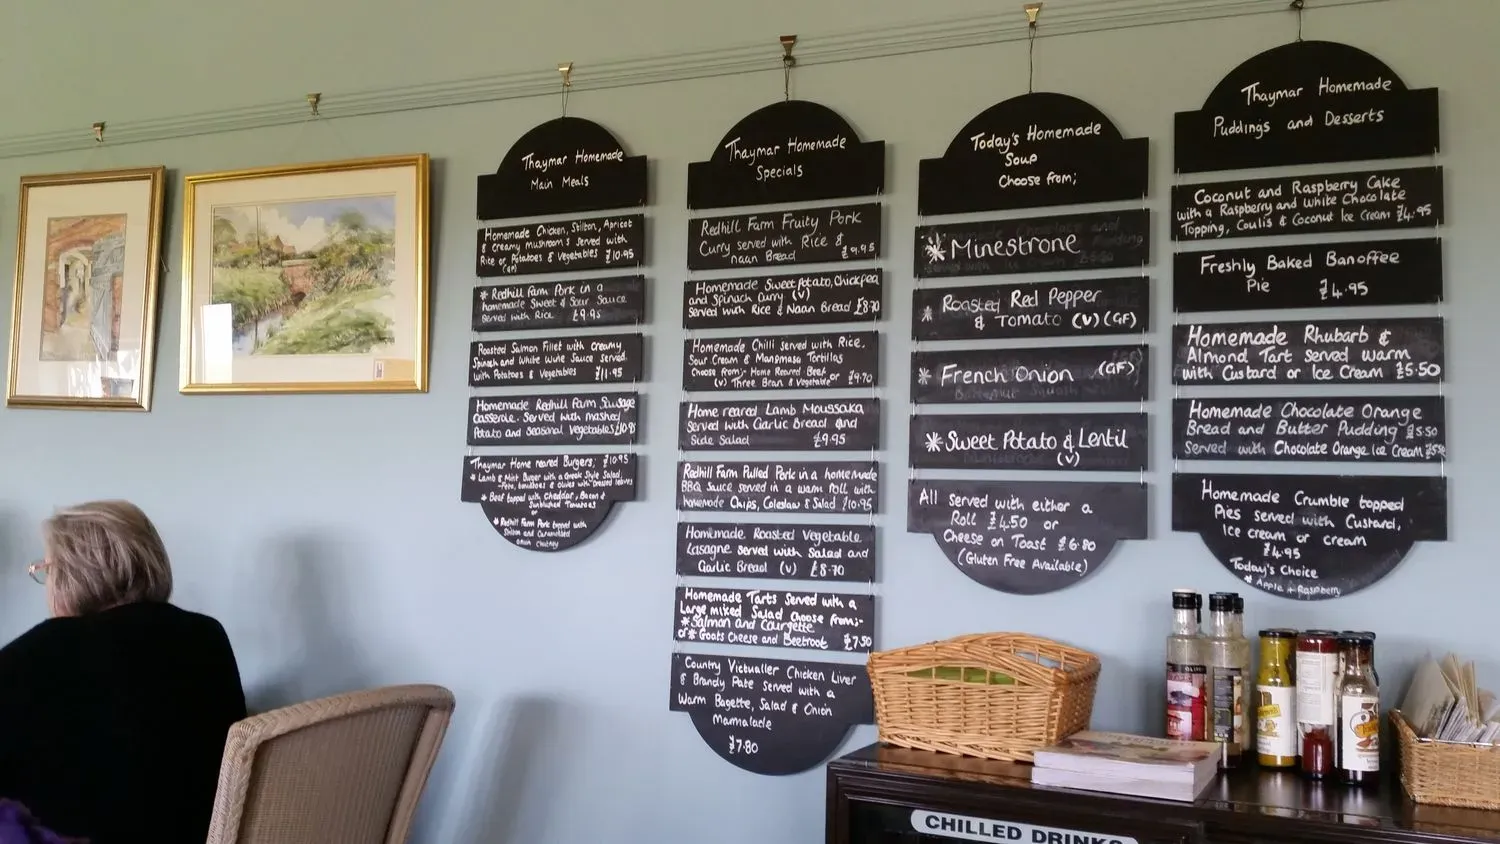 Thaymar Homemade
Main Meals
Homemade Chicken, Stilton, Apricot
& Creamy mushrooms served with
Rice or Potatoes & Vegetables £10.95
(GF)
* Redhill Farm Pork in a
homemade Sweet & Sour Sauce
Served with Rice £9.95
Roasted Salmon Fillet with creamy
Spinach and White Wine Sauce served
with Potatoes & Vegetables £11.95
Homemade Redhill Farm Sausage
Casserole. Served with mashed
Potato and Seasonal Vegetables £10.95
Thaymar Home reared Burgers; £10.95
* Lamb & Mint Burger with a Greek Style Salad,
Feta, tomatoes & Olives with Dressed leaves
* Beef topped with Cheddar, Bacon &
Sunblushed Tomatoes
or
* Redhill Farm Pork topped with
Stilton and Caramelised
Onion Chutney
Thaymar Homemade
Specials
Redhill Farm Fruity Pork
Curry served with Rice &
naan Bread £9.95
Homemade Sweet Potato, Chickpea
and Spinach Curry (v)
Served with Rice & Naan Bread £8.70
Homemade Chilli served with Rice,
Sour Cream & Manomasa Tortillas
Choose from;- Home Reared Beef
(v) Three Bean & Vegetable or £9.70
Home reared Lamb Moussaka
served with Garlic Bread and
Side Salad £9.95
Redhill Farm Pulled Pork in a homemade
BBQ Sauce served in a warm roll with
homemade Chips, Coleslaw & Salad £10.95
Homemade Roasted Vegetable
Lasagne served with Salad and
Garlic Bread (v) £8.70
Homemade Tarts Served with a
Large mixed Salad choose from;-
* Salmon and Courgette
or * Goats Cheese and Beetroot £7.50
Country Victualler Chicken Liver
& Brandy Pate served with a
Warm Bagette, Salad & Onion
Marmalade
£7.80
Today's Homemade
Soup
Choose from;
* Minestrone
* Roasted Red Pepper
& Tomato (v) (GF)
* French Onion (GF)
* Sweet Potato & Lentil
(v)
All served with either a
Roll £4.50 or
Cheese on Toast £6.80
(Gluten Free Available)
Thaymar Homemade
Puddings and Desserts
Coconut and Raspberry Cake
with a Raspberry and White Chocolate
Topping, Coulis & Coconut Ice Cream £4.95
Freshly Baked Banoffee
Pie £4.95
Homemade Rhubarb &
Almond Tart served warm
with Custard or Ice Cream £5.50
Homemade Chocolate Orange
Bread and Butter Pudding £5.50
served with Chocolate Orange Ice Cream
Homemade Crumble topped
Pies served with Custard,
Ice cream or cream
£4.95
Today's Choice
* Apple + Raspberry
CHILLED DRINKS